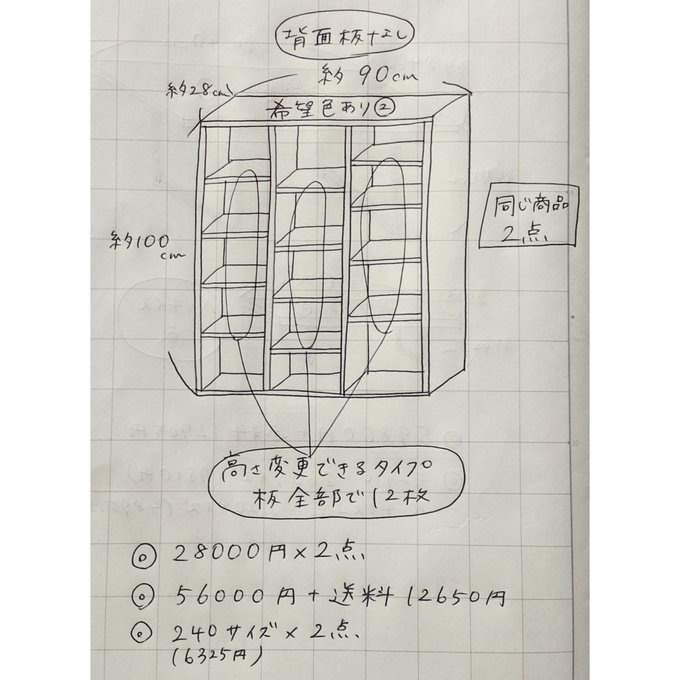 背面板なし
約90cm
約28cm
希望色あり②
約100
cm
同じ商品
2点
高さ変更できるタイプ
板全部で12枚
◎ 28000円×2点
◎ 56000円+送料12650円
◎ 240サイズ×2点
(6325円)